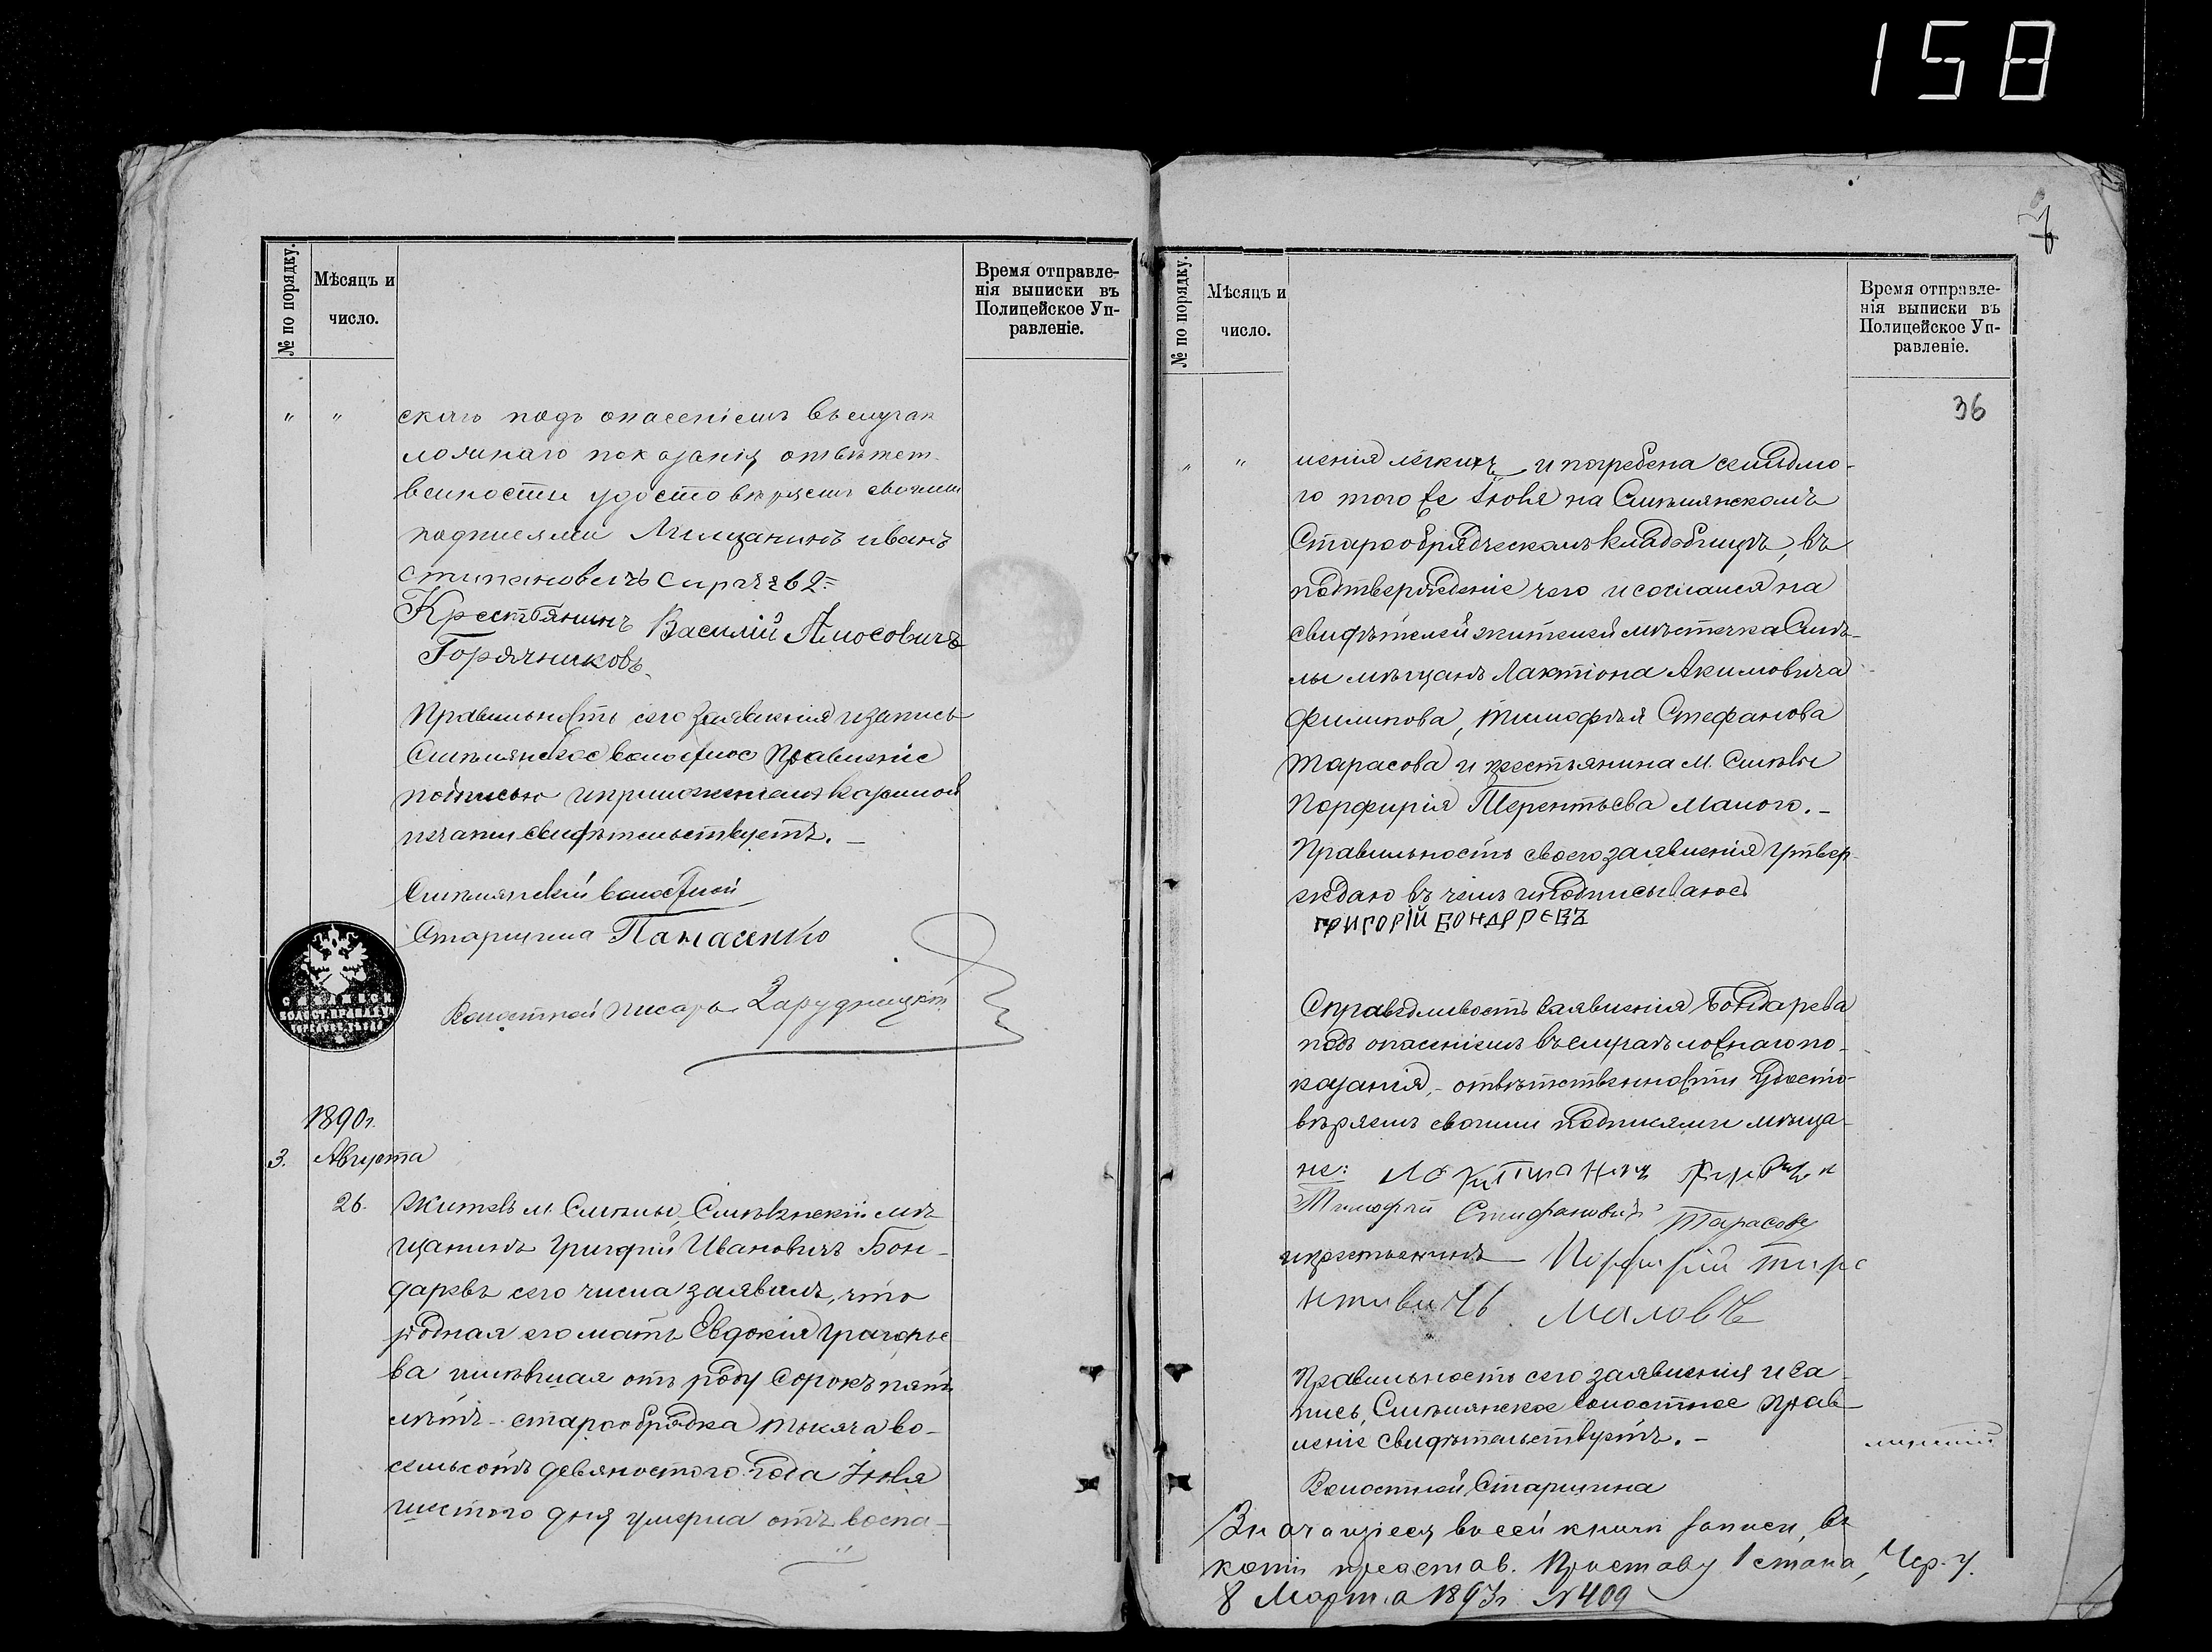 158
№ по порядку.
Мѣсяцъ и
число.
Время отправле-
нія выписки въ
Полицейское Уп-
равленіе.
" " скаго подъ опасеніемъ въ случаѣ
ложнаго показанія отвѣтст-
венности удостовѣряемъ своими
подписями Мищанинъ иванъ
Крестьянинъ Василій Амосовичъ
Горячниковъ
Правильность сего заявленія и запись
Смѣлянское волостное Правленіе
подписью и приложеніемъ казенной
печати свидѣтельствуетъ. —
Смѣлянскій волостной
Старшина Панасенко
Волостной писарь Зарудницкій
1890 г.
3. Августа
26. Житель м. Смѣлы, Смѣлянскій мѣ-
щанинъ Григорій Ивановичъ Бон-
даревъ сего числа заявилъ, что
родная его мать Евдокія Григорье-
ва имѣвшая отъ роду сорокъ пять
лѣтъ - старообрядка тысяча во-
семьсотъ девяностого года Іюля
шестого дня умерла отъ воспа-
№ по порядку.
Мѣсяцъ и
число.
Время отправле-
нія выписки въ
Полицейское Уп-
равленіе.
36
" " ленія легкихъ и погребена седьмо-
го того же Іюля на Смѣлянскомъ
Старообрядческомъ кладбищѣ, въ
подтвержденіе чего и сослался на
свидѣтелей жителей мѣстечка Смѣ-
лы мѣщанъ Лактіона Акимовича
Филипова, Тимофѣя Стефанова
Тарасова и крестьянина м. Смѣлы
Порфирія Терентьева Малого. —
Правильность своего заявленія утвер-
ждаю въ чемъ и подписываюсь
ГРИГОРІЙ БОНДАРЕВЪ
Справедливость заявленія Бондарева
подъ опасеніемъ въ случаѣ ложнаго по-
казанія, - отвѣтственности удосто-
вѣряемъ своими подписями мѣща-
не:
Тимофей Стифановичъ Тарасовъ
и крестьянинъ Порфирій тире
нтивичъ Маловъ
Правильность сего заявленія и за-
пись, Смѣлянское волостное прав-
леніе свидѣтельствуетъ. —
Волостной Старшина
Значащіеся въ сей книги записи, въ
копіи представ. Приставу 1 стана, Чер. у.
8 Марта 1893 г. № 409